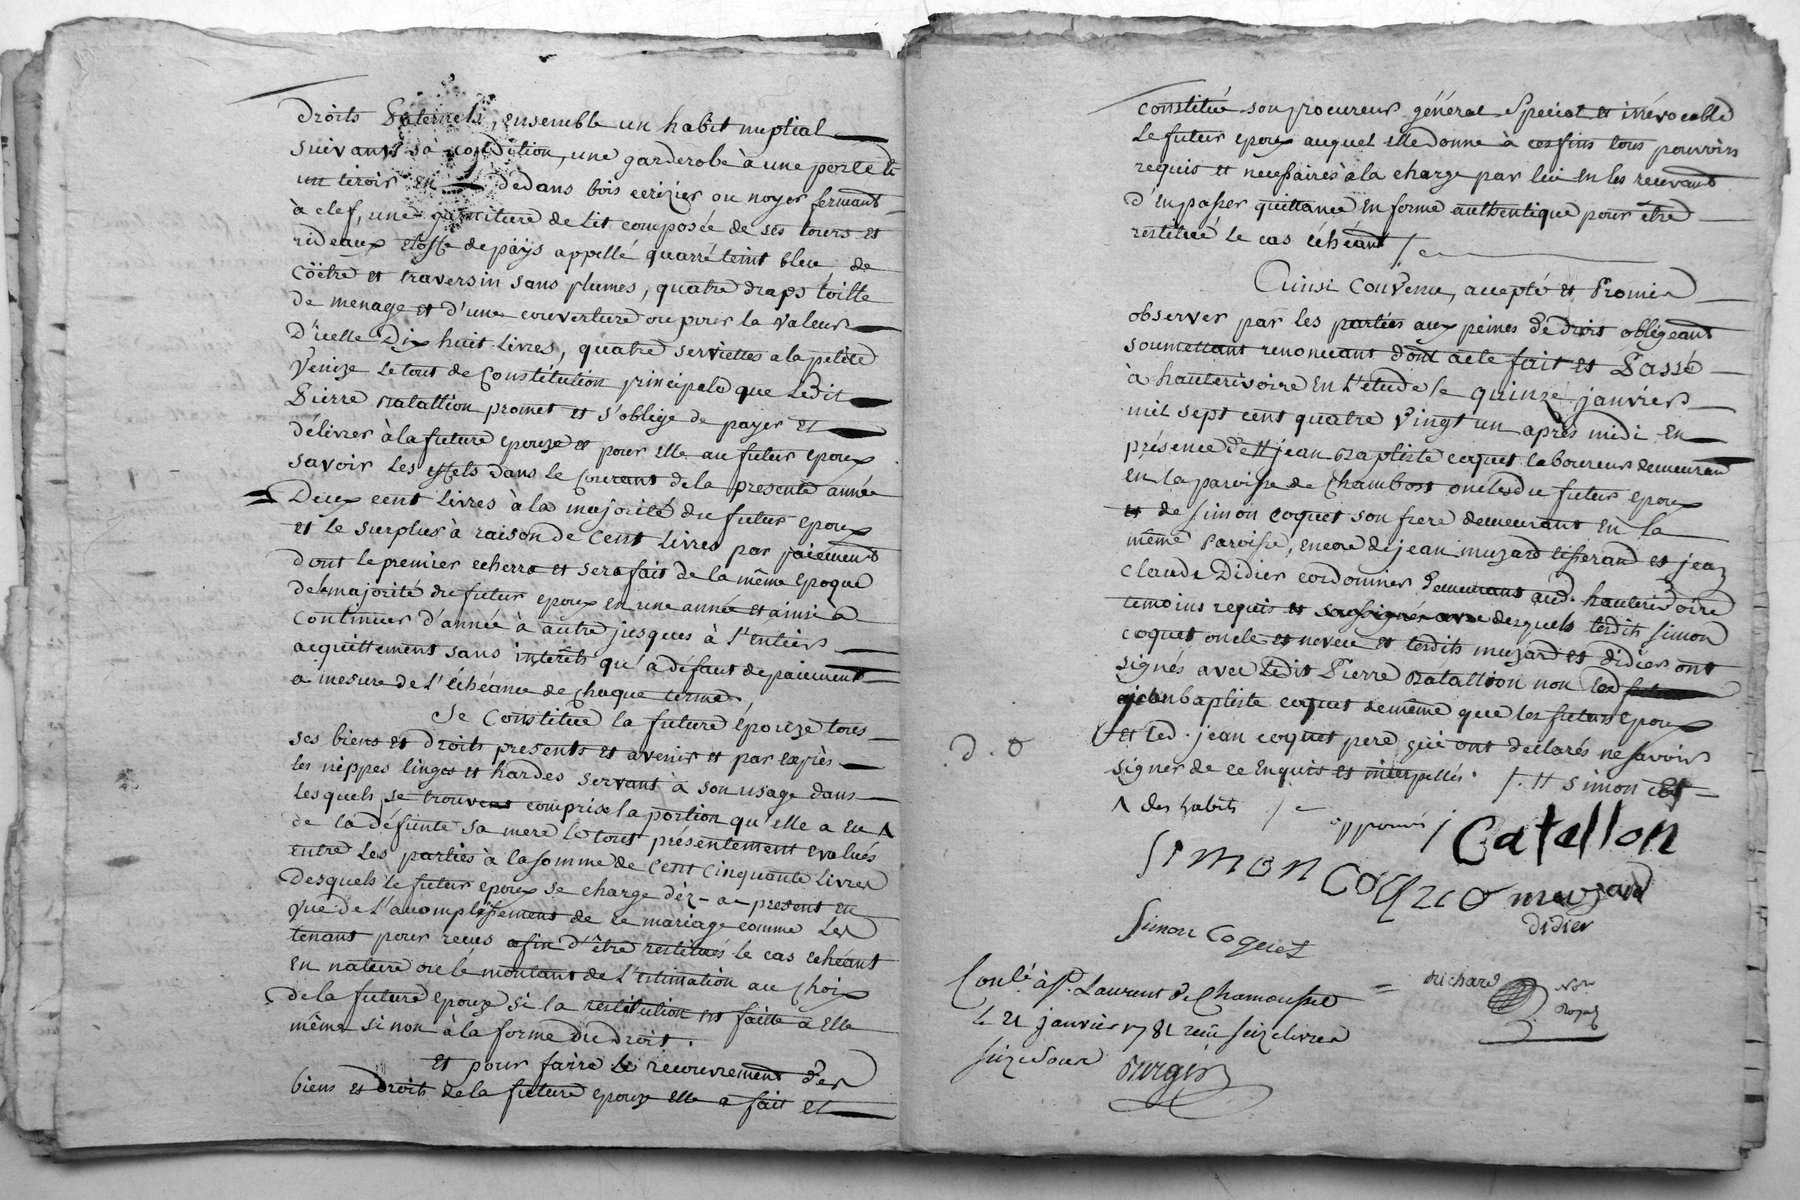 droits Paternels, ensemble un habit nuptial
suivant sa condition, une garderobe à une porte et
un tiroir en dedans bois cerizier ou noyer fermant
à clef, une garniture de lit composée de ses tours et
rideaux etoffe de païs appellé quarré teint bleu de
Cöetre et traversin sans plumes, quatre draps toille
de menage et d'une couverture ou pour la valeur
D'icelle Dix huit Livres, quatre serviettes a la petite
Venize Le tout de Constitution principale que Ledit
Pierre Batallion promet et s'oblige de payer et
délivrer à la future epouze et pour elle au futur epoux
savoir Les effets dans le Courant de la presente année
Deux cent Livres à la majorité du futur epoux
et le surplus à raison de Cent Livres par paiement
dont le premier echerra et sera fait de la même epoque
de majorité du futur epoux en une année et ainsi à
Continuer d'année à autre jusques à l'entier
acquittement sans interêts qu'a défaut de paiement
a mesure de l'échéance de Chaque terme.
Se Constitue la future Epouze tous
ses biens et droits presents et avenir et par exprès
les nippes linges et hardes servant à son usage dans
Lesquels se trouvent comprise la portion qu'elle a eu Λ
de la défunte sa mere le tout présentement evalués
entre Les parties à la somme de Cent Cinquante Livres
Desquels le futur epoux se charge déz-a-present en
vue de l'accomplissement de ce mariage comme Les
tenant pour recus afin d'être restitués le cas echéant
En nature ou le montant de L'estimation au Choix
de la future epouze si la restitution est faitte a elle
même si non à la forme du droit.
et pour faire le recouvrement des
biens et droits de la future epouze elle a fait et
constitué son procureur général Special et irrévocable
Le futur epoux auquel elle donne à ces fins tous pouvoirs
requis et necessaires à la charge par lui en les recevant
d'en passer quittance en forme authentique pour être
restitué le cas échéant
Ainsi Convenu, accepté et Promis
observer par les parties aux peines de droit obligeant
soumettant renoncant dont acte fait et Passé
à hauterivoire En L'étude le quinze janvier
mil sept cent quatre Vingt un après midi En
présence de # jean Baptiste coquet laboureur demeurant
en la paroisse de Chambost oncles du futur epoux
et de simon coquet son frere demeurant en la
même Paroisse, encore de jean muzard tisserand et jean
Claude Didier cordonnier demeurants aud. hauterivoire
temoins requis et desquels lesdits simon
coquet oncle et neveu et lesdits muzard et didier ont
signés avec Ledit Pierre Batallion non led
jean baptiste coquet de même que les futurs epoux
et led. jean coquet pere qui ont declarés ne savoir
signer de ce Enquis et interpellés. /. # simon et
Λ des habits
approuvés
Catellon
Simon coquo muzard
didier
Simon Coquet
Conlé à St. Laurent de Chamousset
le 21 janvier 1781 recu seize livres
seize sous
D. O